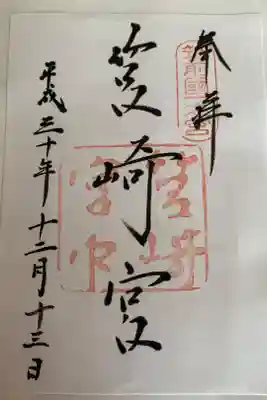 奉拝
筥崎宮
平成三十年十二月十三日